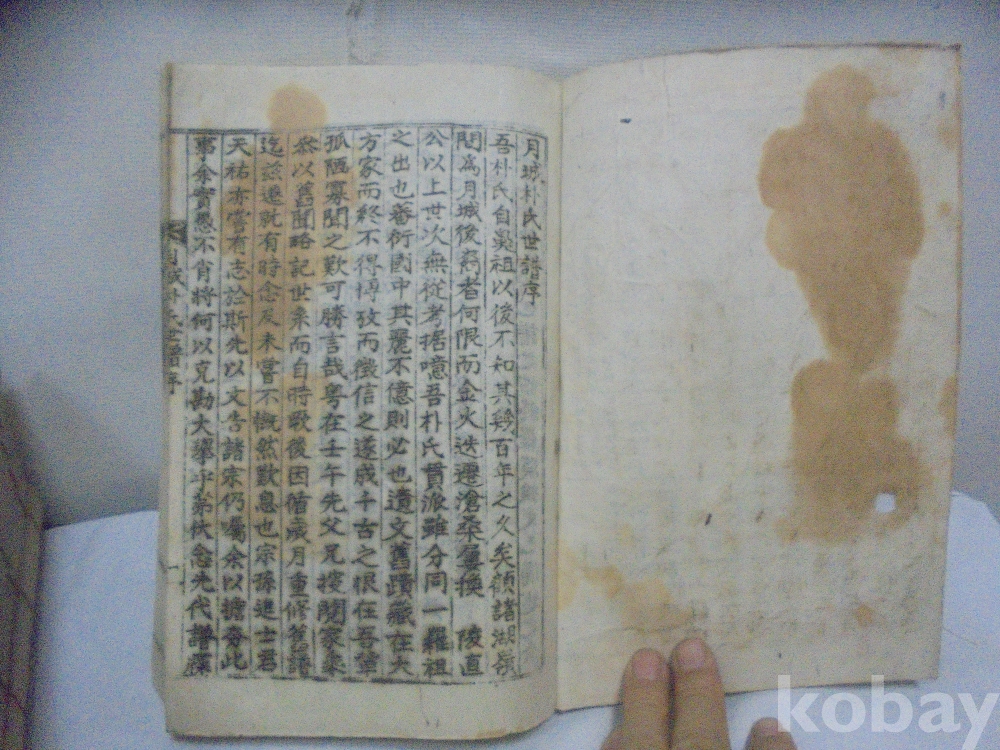 月城朴氏世譜序
吾朴氏自鼻祖以後不知其幾百年之久矣顧諸湖嶺
間爲月城後裔者何限而金火迭遷滄桑屢換 陵直
公以上世次無從考据噫吾朴氏貫派雖分同一羅祖
之出也蕃衍國中其麗不億則必也遺文舊蹟藏在大
方家而終不得博攷而徵信之遂成千古之恨在吾輩
孤陋寡聞之歎可勝言哉粤在壬午先父兄搜閱家乘
叅以舊聞略記世系而自時厥後因循歲月重修舊譜
迄玆遷就有時念及未嘗不慨然歎息也宗孫進士君
天祐亦嘗有志於斯先以文告諸宗仍囑余以擔夯此
事余實愚不肖將何以克勘大擧乎第伏念先代譜牒
月城朴氏世譜序
一
kobay